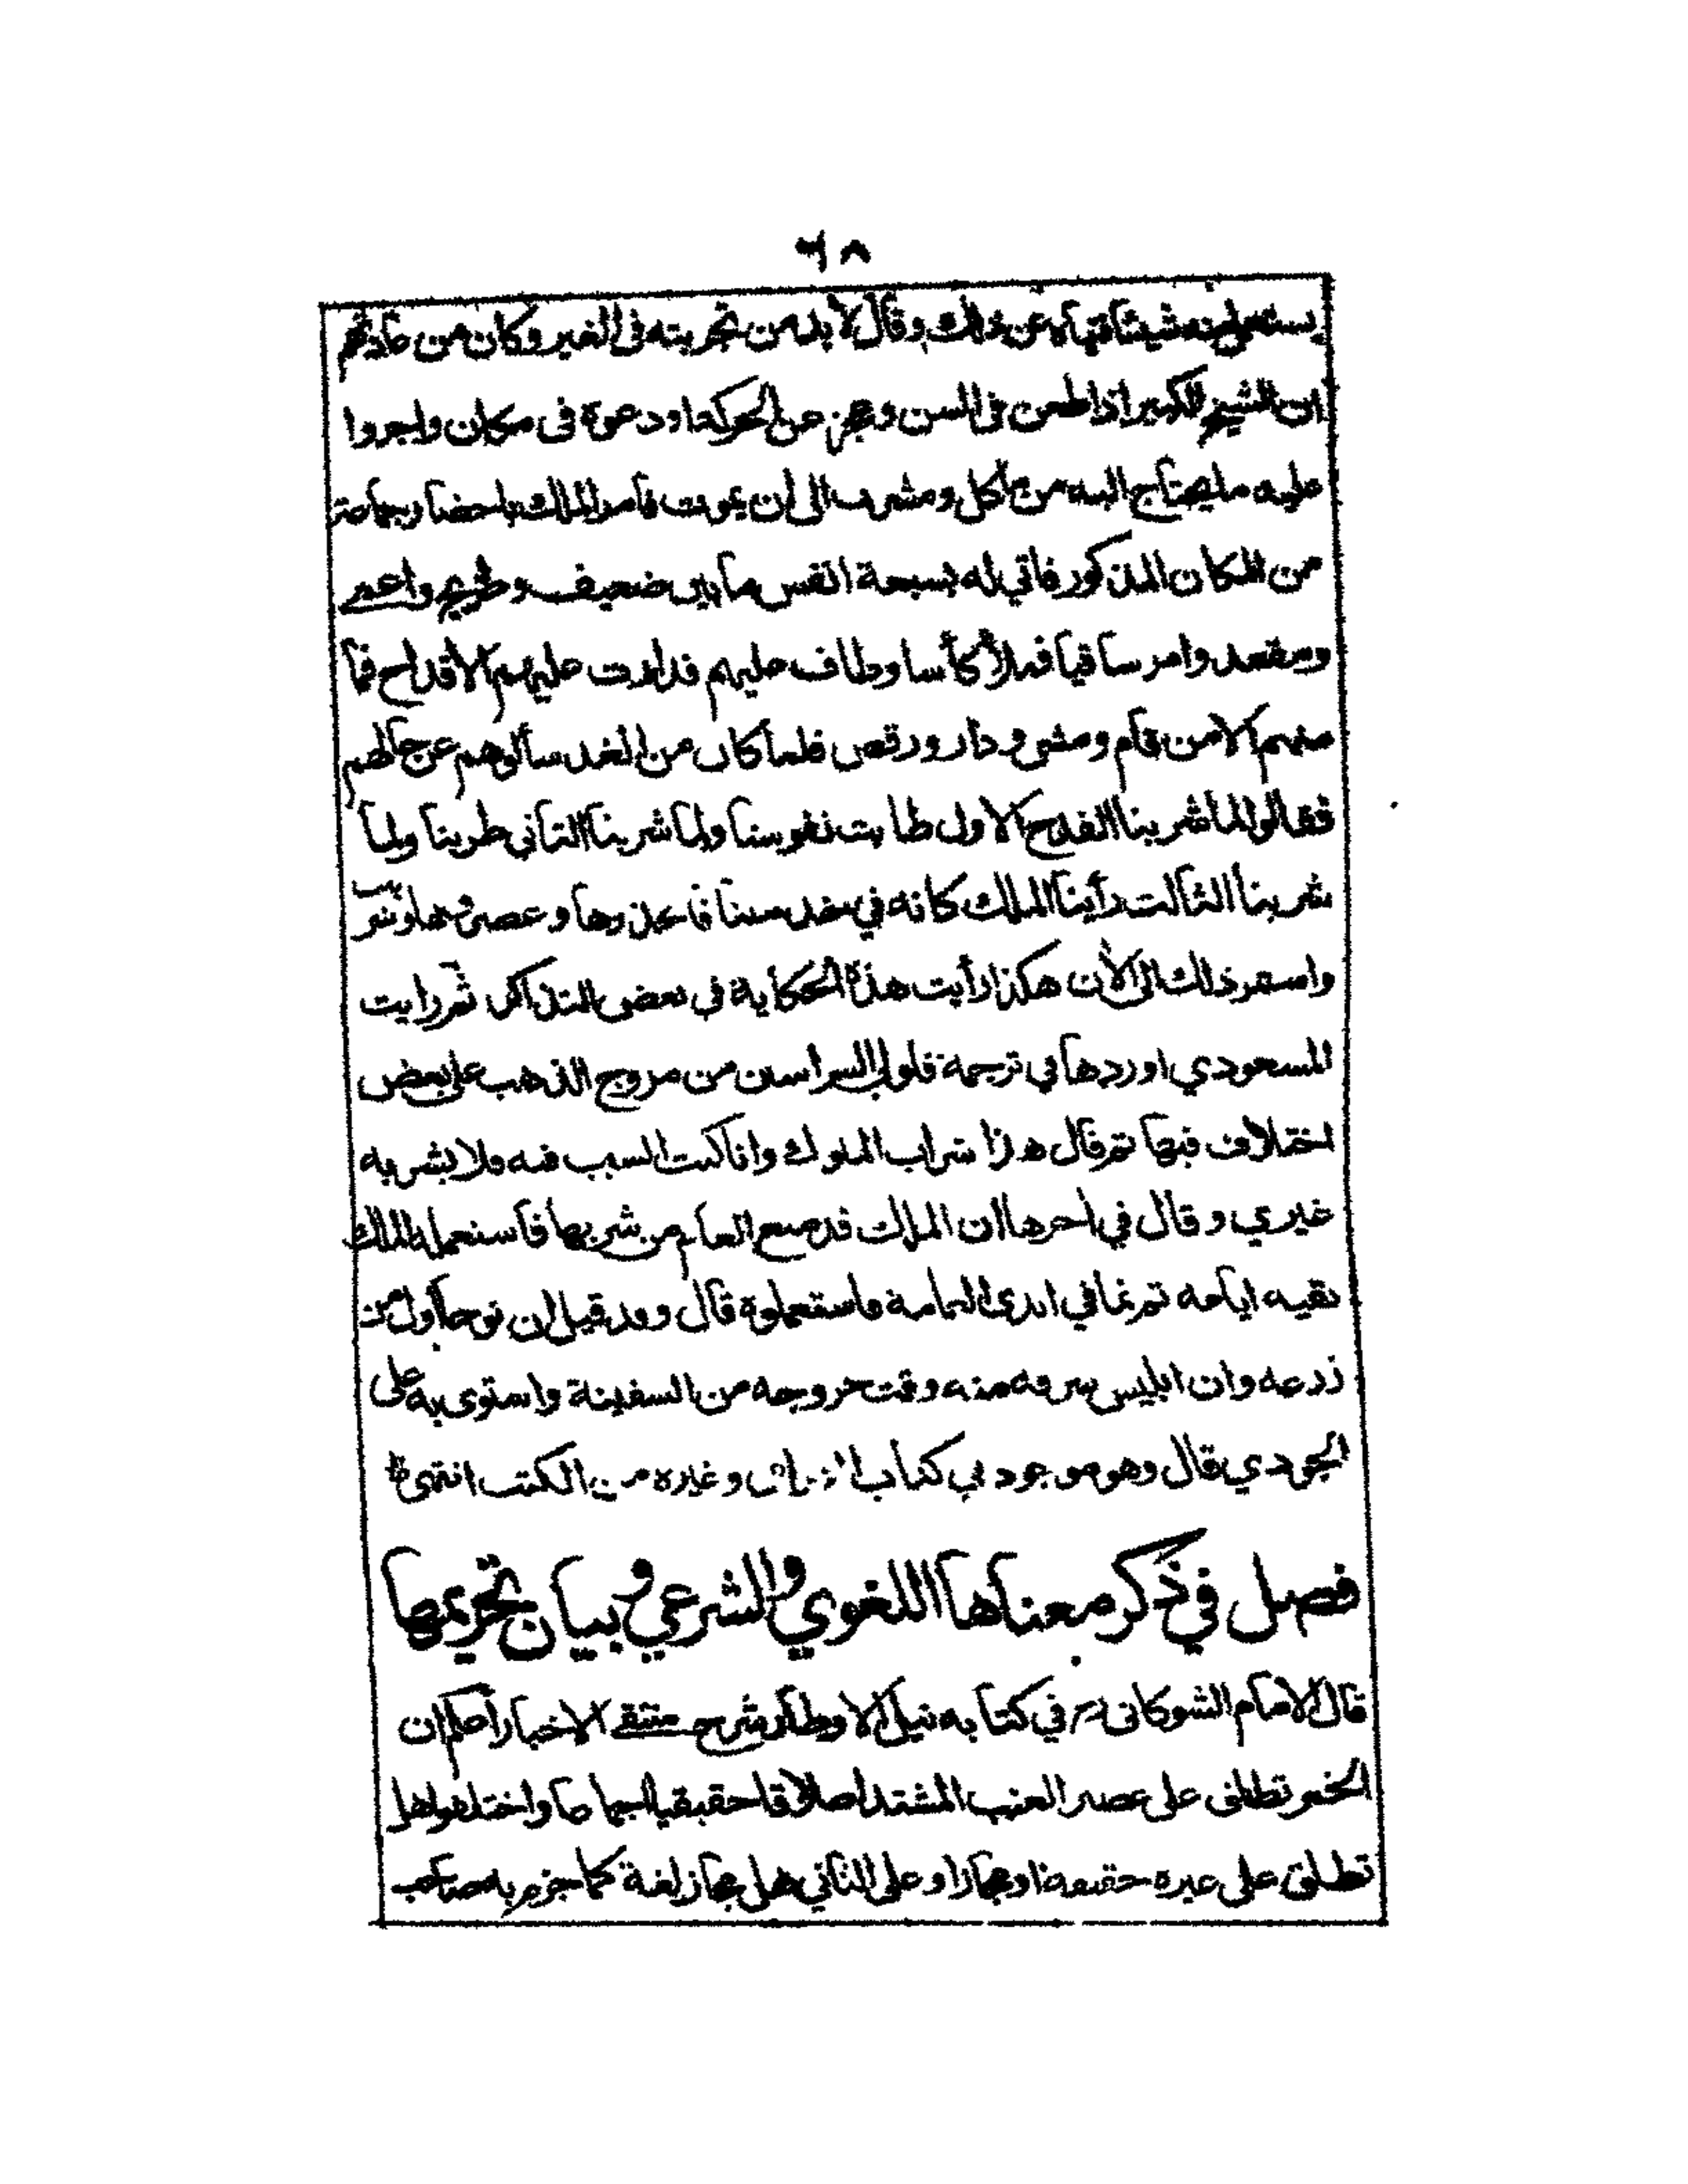 ٦٨
يستعمل منه شيئا فنهاه عن ذلك وقال لا بد من تجربته فى الغير وكان من عادتهم
ان الشيخ الكبير اذا طعن فى السن وعجز عن الحركة اودعوه فى مكان واجروا
عليه ما يحتاج اليه من مأكل ومشرب الى ان يموت فامر الملك باحضار جماعة
من المكان المذكور فاتي له بسبعة انفس ما بين ضعيف و واعمى
ومقعد وامر ساقيا فملأ كأسا وطاف عليهم فدارت عليهم الأقداح فما
منهم الا من قام ومشى ودار ورقص فلما كان من الغد سألوهم عن حالهم
فقالوا لما شربنا القدح الاول طابت نفوسنا ولما شربنا الثاني طربنا ولما
شربنا الثالث رأينا الملك كانه في خدمتنا وعصروها وشربت
واستمر ذلك الى الآن هكذا رأيت هذه الحكاية في بعض التذاكر ثم رايت
المسعودي اوردها في ترجمة ملوك السريان من مروج الذهب على بعض
اختلاف فيها ثم قال هذا شراب الملوك وانا كنت السبب فيه فلا يشربه
غيري وقال في اخرها ان الملك قد منع العام من شربها فاستعمله الملك
بقيه ايامه ثم نما في ايدى العامة واستعملوه قال وقد قيل ان نوحا أول من
زرعه وان ابليس سرقه منه وقت خروجه من السفينة واستوى به على
الجودي قال وهو موجود في كتاب وغيره من الكتب انتهى
فصل في ذكر معناها اللغوي والشرعي وبيان تحريمها
قال الامام الشوكانى في كتابه نيل الاوطار شرح منتقى الاخبار اعلم ان
الخمر تطلق على عصير العنب المشتد اطلاقا حقيقيا اجماعا واختلفوا هل
تطلق على غيره حقيقة او مجازا وعلى الثاني هل مجاز لغة كما جزم به صاحب